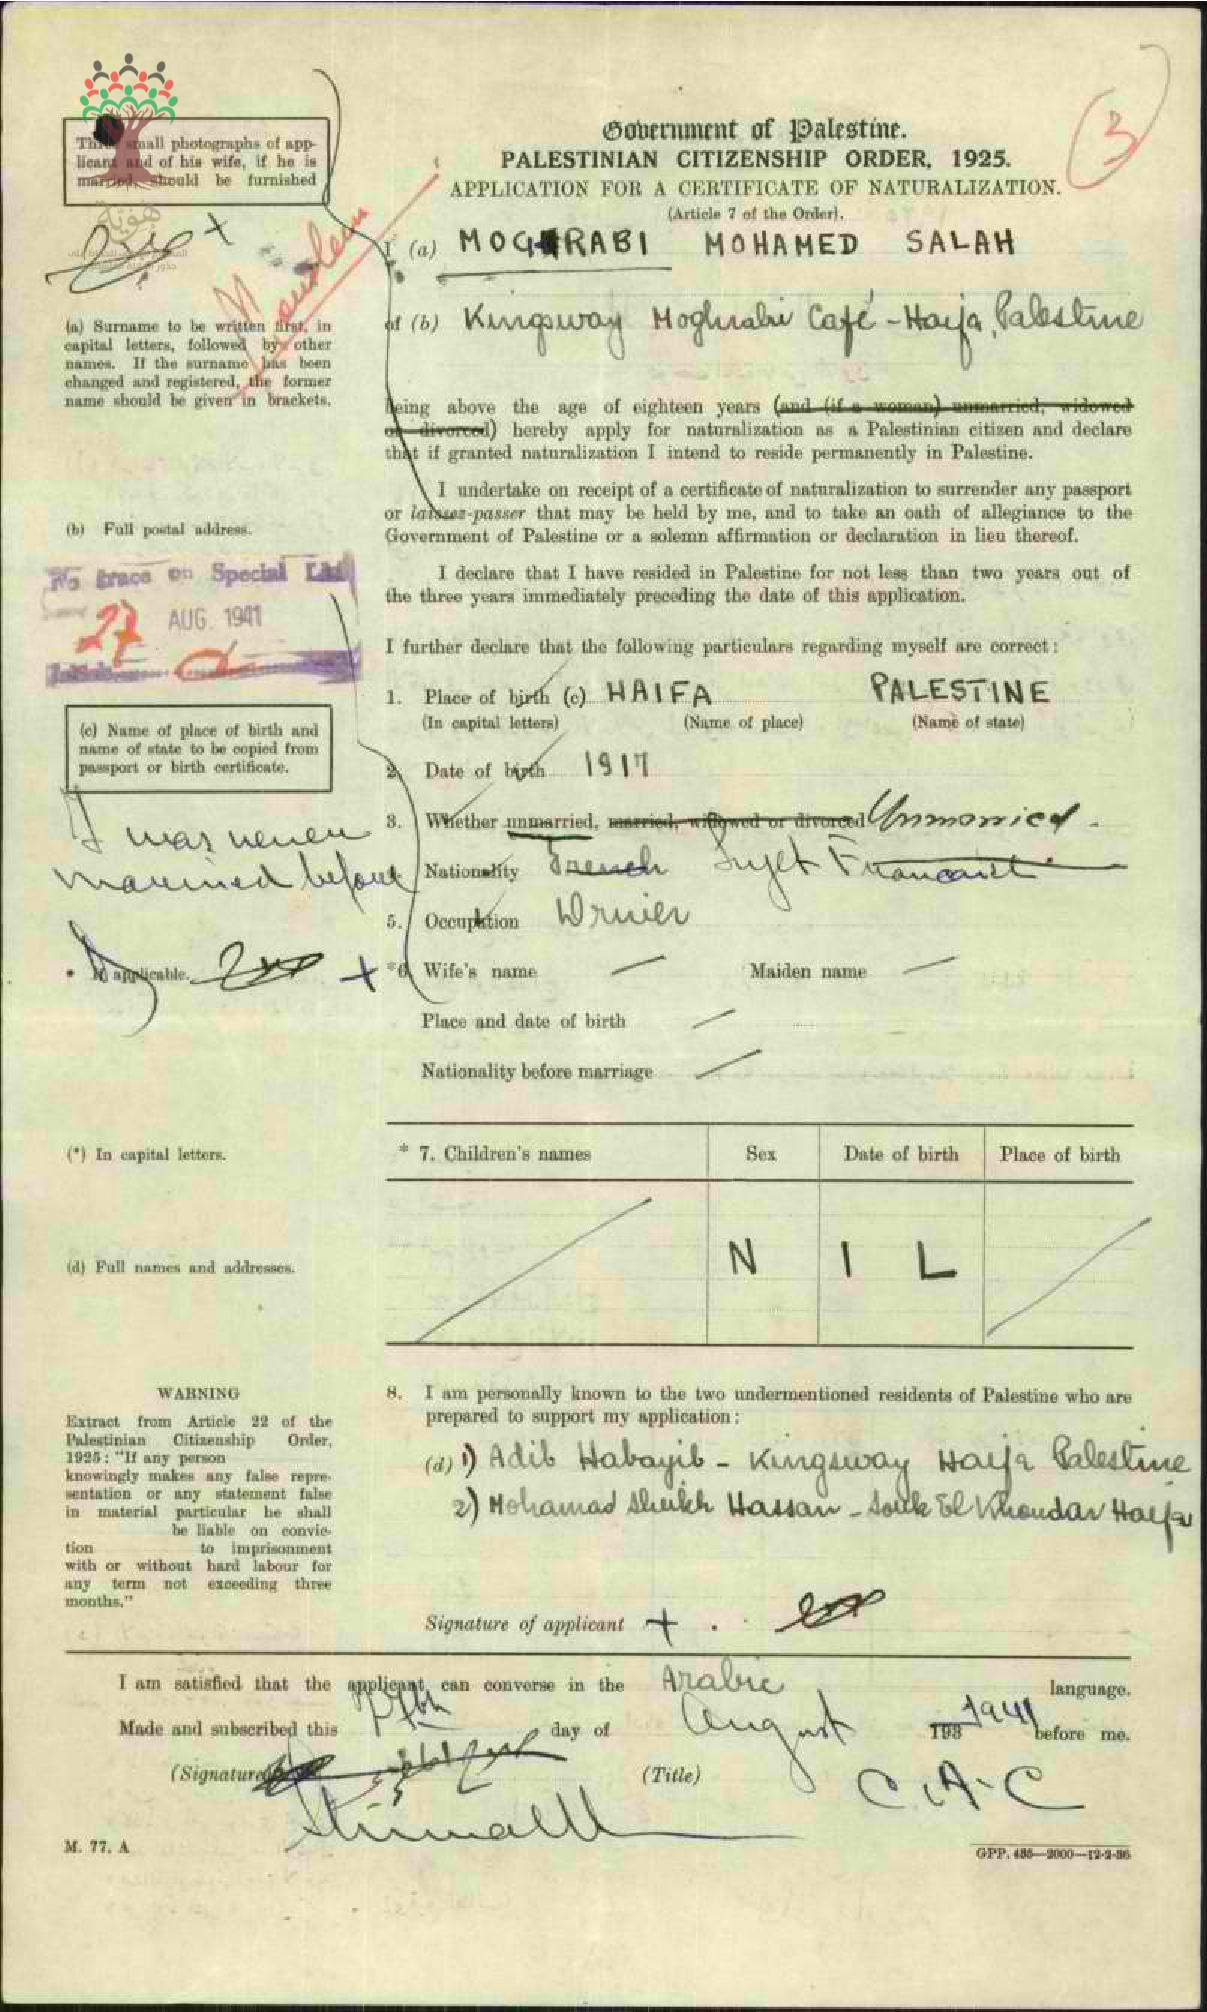 Three small photographs of app-
licant and of his wife, if he is
married, should be furnished
هوية
Moslem
(a) Surname to be written first, in
capital letters, followed by other
names. If the surname has been
changed and registered, the former
name should be given in brackets.
(b) Full postal address.
No trace on Special List
27 AUG. 1941
(c) Name of place of birth and
name of state to be copied from
passport or birth certificate.
I was never
married before
* If applicable.
(*) In capital letters.
(d) Full names and addresses.
WARNING
Extract from Article 22 of the
Palestinian Citizenship Order,
1925: "If any person
knowingly makes any false repre-
sentation or any statement false
in material particular he shall
be liable on convic-
tion to imprisonment
with or without hard labour for
any term not exceeding three
months."
3
Government of Palestine.
PALESTINIAN CITIZENSHIP ORDER, 1925.
APPLICATION FOR A CERTIFICATE OF NATURALIZATION.
(Article 7 of the Order).
I (a) MOGHRABI MOHAMED SALAH
of (b) Kingsway Moghrabi Café - Haifa, Palestine
being above the age of eighteen years (and (if a woman) unmarried, widowed
or divorced) hereby apply for naturalization as a Palestinian citizen and declare
that if granted naturalization I intend to reside permanently in Palestine.
I undertake on receipt of a certificate of naturalization to surrender any passport
or laissez-passer that may be held by me, and to take an oath of allegiance to the
Government of Palestine or a solemn affirmation or declaration in lieu thereof.
I declare that I have resided in Palestine for not less than two years out of
the three years immediately preceding the date of this application.
I further declare that the following particulars regarding myself are correct:
1. Place of birth (c) HAIFA PALESTINE
(In capital letters) (Name of place) (Name of state)
2. Date of birth 1917
3. Whether unmarried, married, widowed or divorced Unmarried.
Nationality French Sujet Francais
5. Occupation Driver
*6. Wife's name Maiden name
Place and date of birth
Nationality before marriage
* 7. Children's names Sex Date of birth Place of birth
N I L
8. I am personally known to the two undermentioned residents of Palestine who are
prepared to support my application:
(d) 1) Adib Habayib - Kingsway Haifa Palestine
2) Mohamad Sheikh Hassan - Souk El Khoudar Haifa
Signature of applicant +
I am satisfied that the applicant can converse in the Arabic language.
Made and subscribed this day of August 193 1941 before me.
(Signature) (Title) C.A.C
M. 77. A
GPP. 485—2000—12-2-36